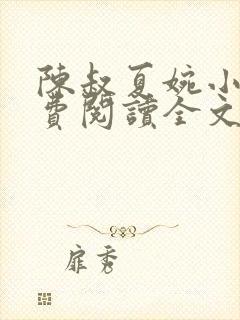 陳叔夏婉小
費閱讀全文
扉秀